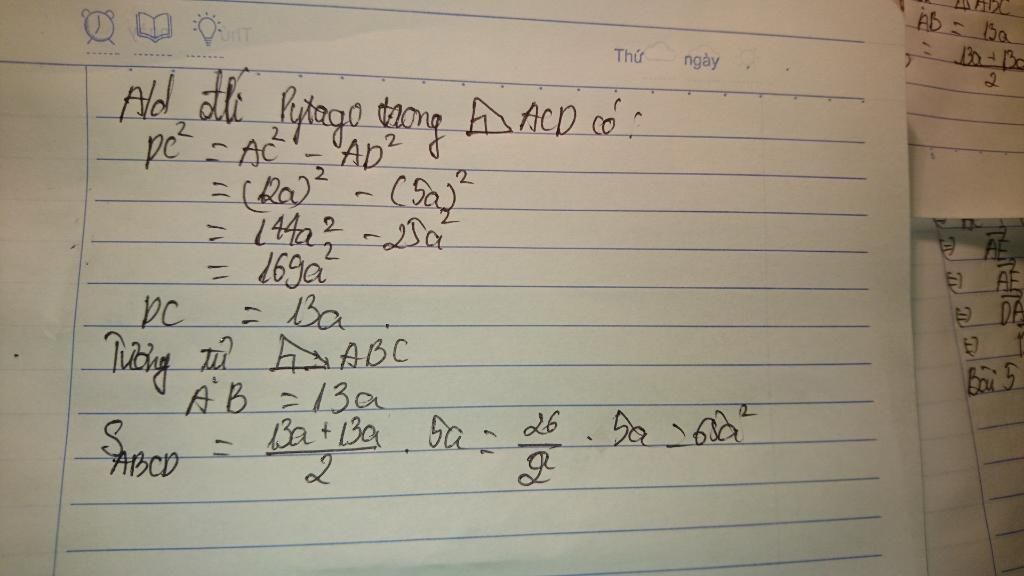 Thứ ngày
A/d đlí Pytago trong ⊿ ACD có:
DC² = AC² - AD²
= (12a)² - (5a)²
= 144a² - 25a²
= 169a²
DC = 13a.
Tương tự ⊿ ABC
AB = 13a
S_ABCD = (13a + 13a)/2 . 5a = 26/2 . 5a = 65a²
ABC
AB = 13a
= (13a + 13a)/2
⇒ AE
⇒ AE
⇒ DA
⇒
Bài 5